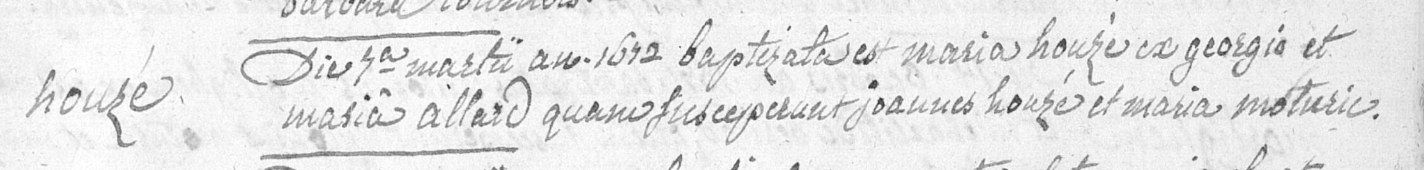 houzé
Die 7a martii an. 1672 baptizata est maria houzé ex georgio et
mariâ allard quam susceperunt joannes houzé et maria